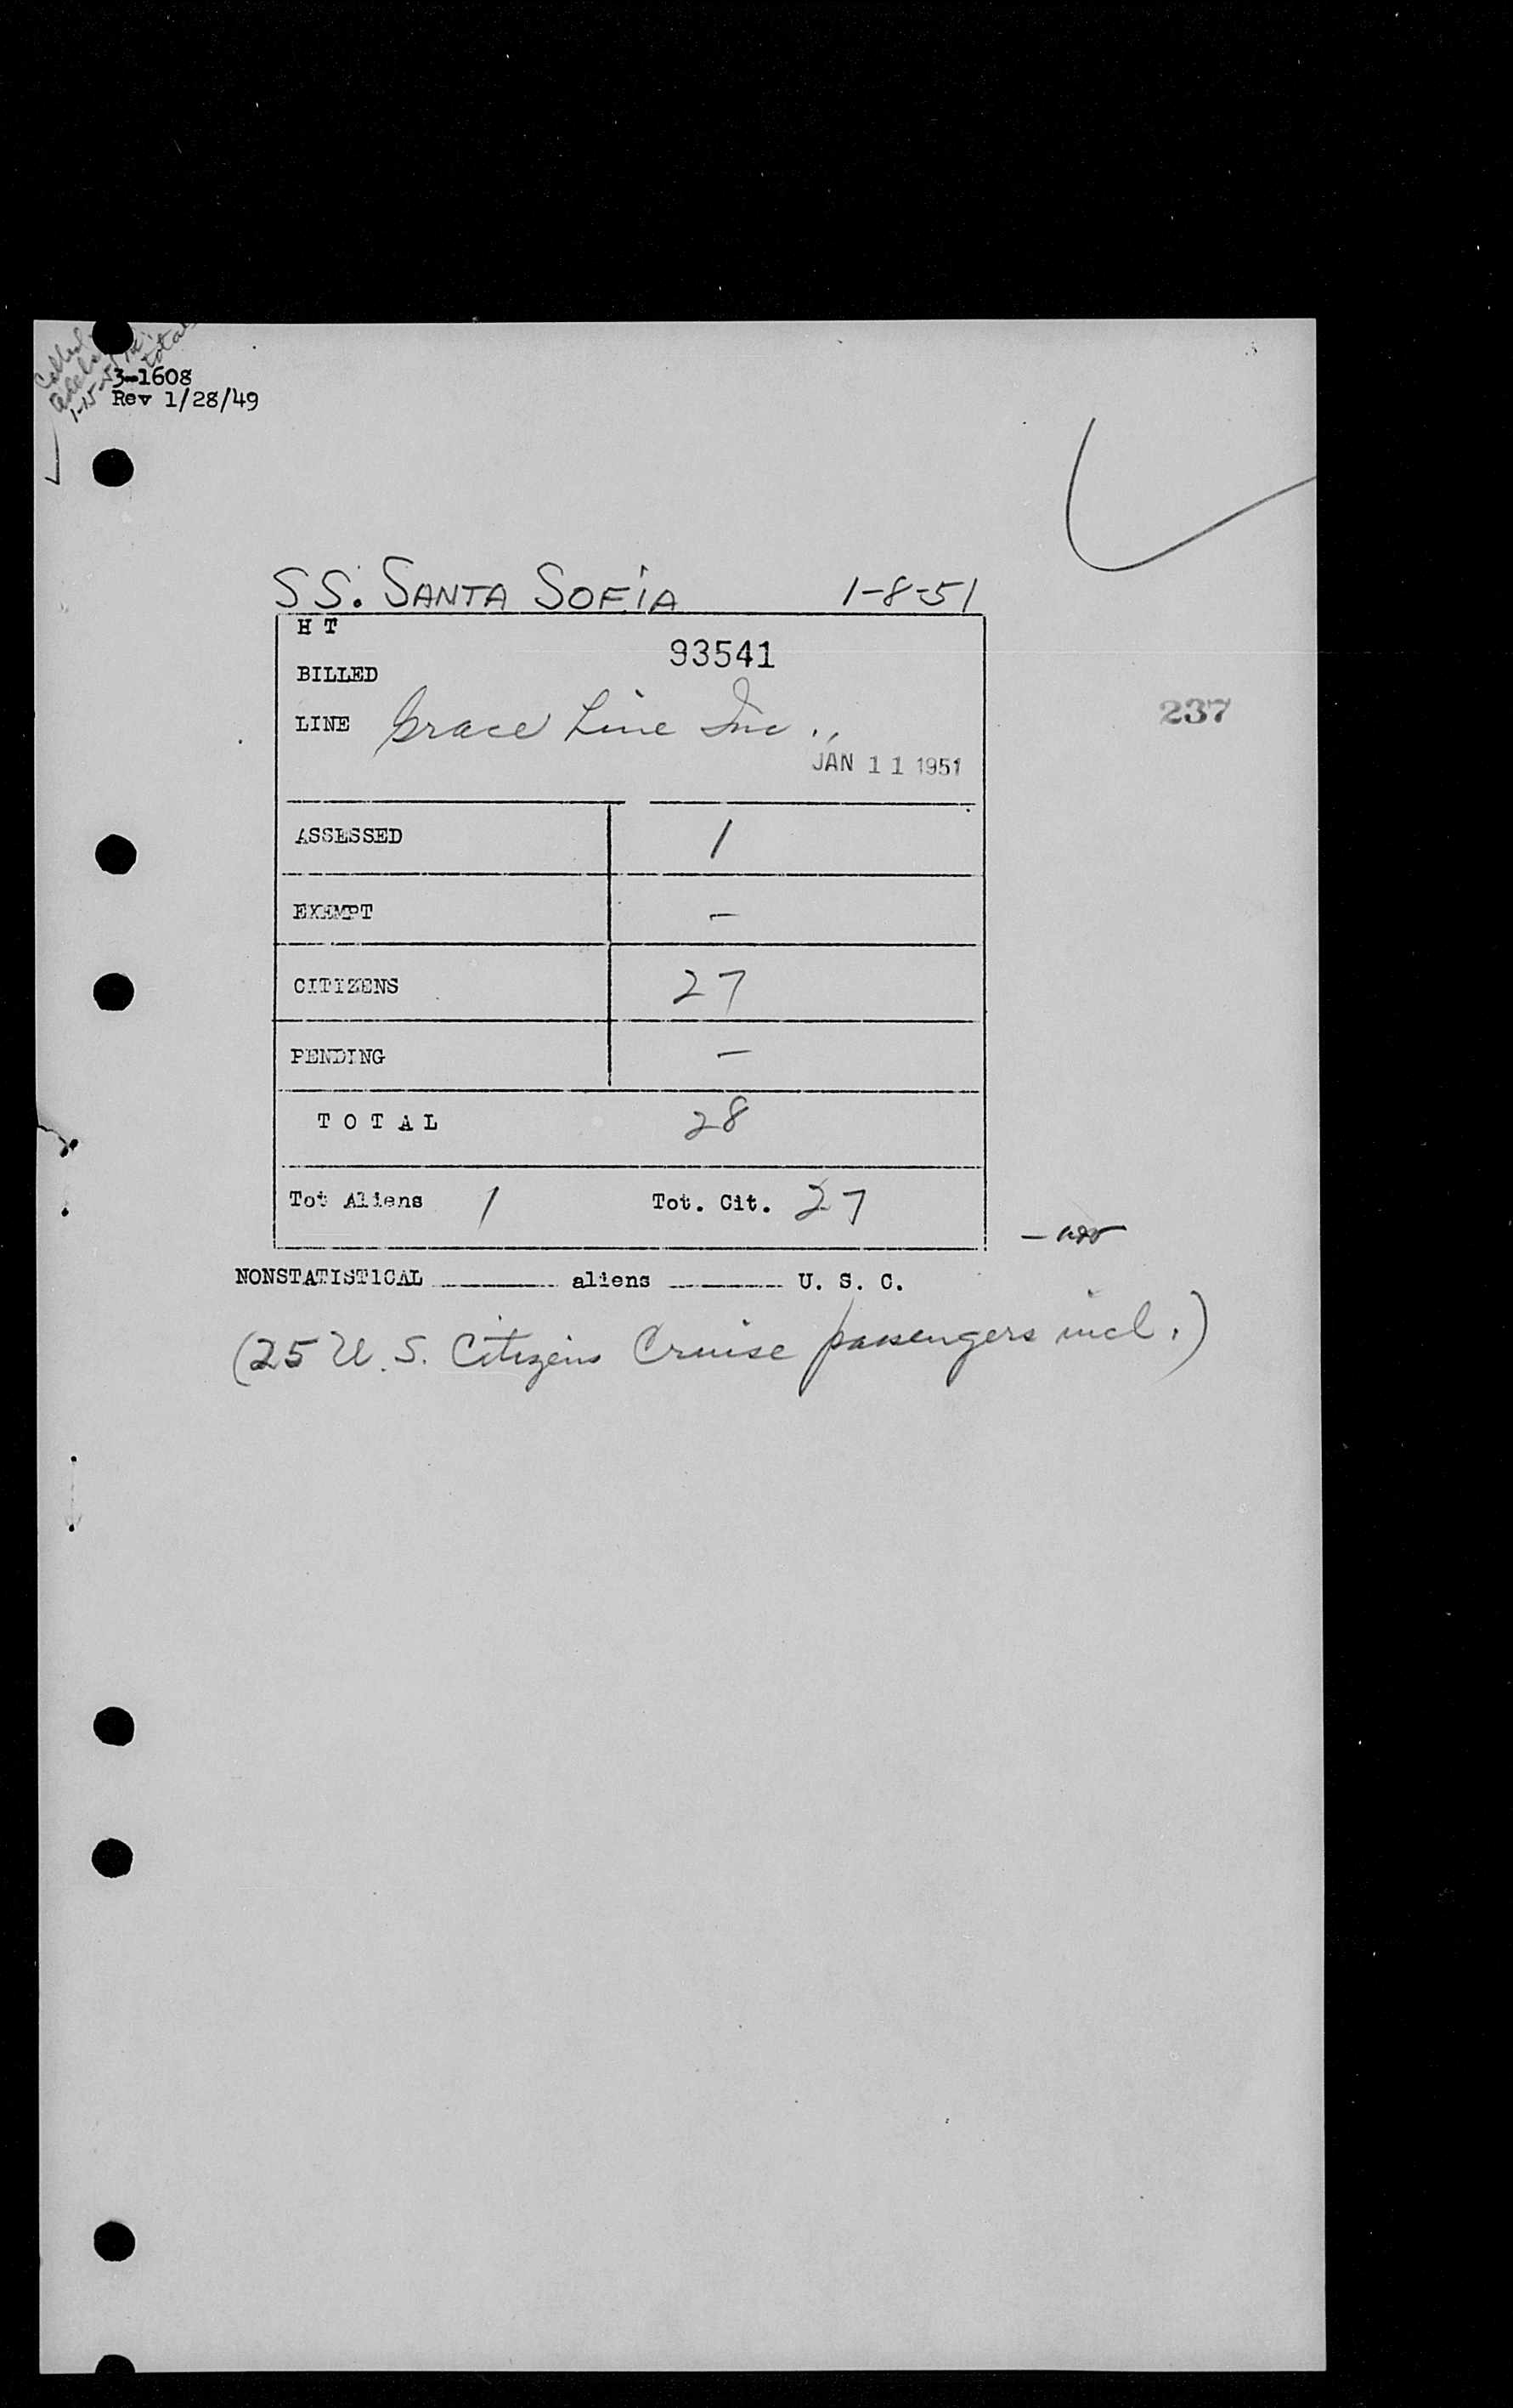 Called
1-15-51
total
3-1608
Rev 1/28/49
SS. SANTA SOFIA 1-8-51
H T
93541
BILLED
LINE Grace Line Inc.
237
JAN 11 1951
ASSESSED 1
EXEMPT –
CITIZENS 27
PENDING –
T O T A L 28
Tot Aliens 1 Tot. Cit. 27
NONSTATISTICAL aliens U. S. C.
(25 U.S. Citizens Cruise passengers incl.)